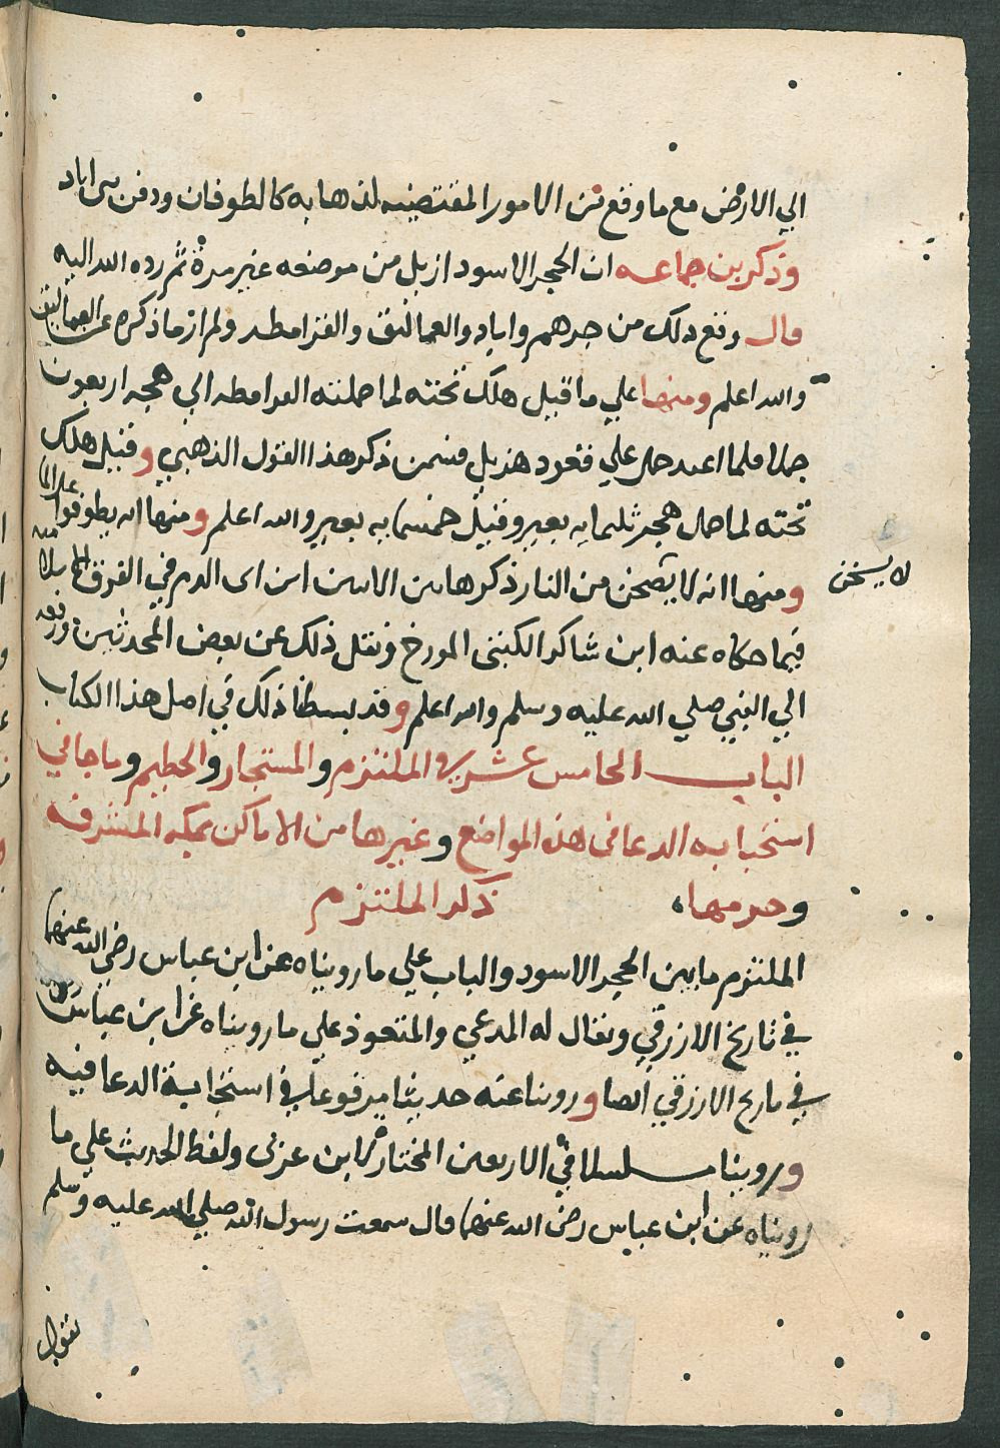 الي الارض مع ما وقع من الامور المقتضيه لذهابه كالطوفان ودفن بني اياد
وذكر بن جماعه ان الحجر الاسود ازيل من موضعه غير مرة ثم رده الله اليه
قال وقع ذلك من جرهم واياد والعماليق والقرامطه ولم ار ما ذكره عن العماليق
والله اعلم ومنها علي ما قيل هلك تحته لما حملته القرامطه الي هجر اربعون
جملا فلما اعيد حمل علي قعود هزيل فسمن ذكر هذا القول الذهبي وقيل هلك
تحته لما حمل هجر ثلثمايه بعير وقيل خمسمايه بعير والله اعلم ومنها انه يطفوا علي الما
ومنها انه لا يصخن من النار ذكر هاتين الايتين ابن ابى الدم في الفرق الاسلاميه
فيما حكاه عنه ابن شاكر الكتبى المورخ ونقل ذلك عن بعض المحدثين ورفعه
الي النبي صلي الله عليه وسلم والله اعلم وقد بسطنا ذلك في اصل هذا الكتاب
الباب الخامس عشر في الملتزم والمستجار والحطيم وما جا في
استجابه الدعا فى هذه المواضع وغيرها من الاماكن بمكه المشرفه
وحرمها، ذكر الملتزم
الملتزم ما بين الحجر الاسود والباب علي ما رويناه عن ابن عباس رضي الله عنهما
في تاريخ الازرقي ويقال له المدعي والمتعوذ علي ما رويناه عن ابن عباس
في تاريخ الازرقي ايضا وروينا عنه حديثا مرفوعا في استجابة الدعا فيه
وروينا مسلسلا في الاربعين المختارة لابن عزى ولفظ الحديث علي ما
رويناه عن ابن عباس رضى الله عنهما قال سمعت رسول الله صلي الله عليه وسلم
يقول
لا يسخن